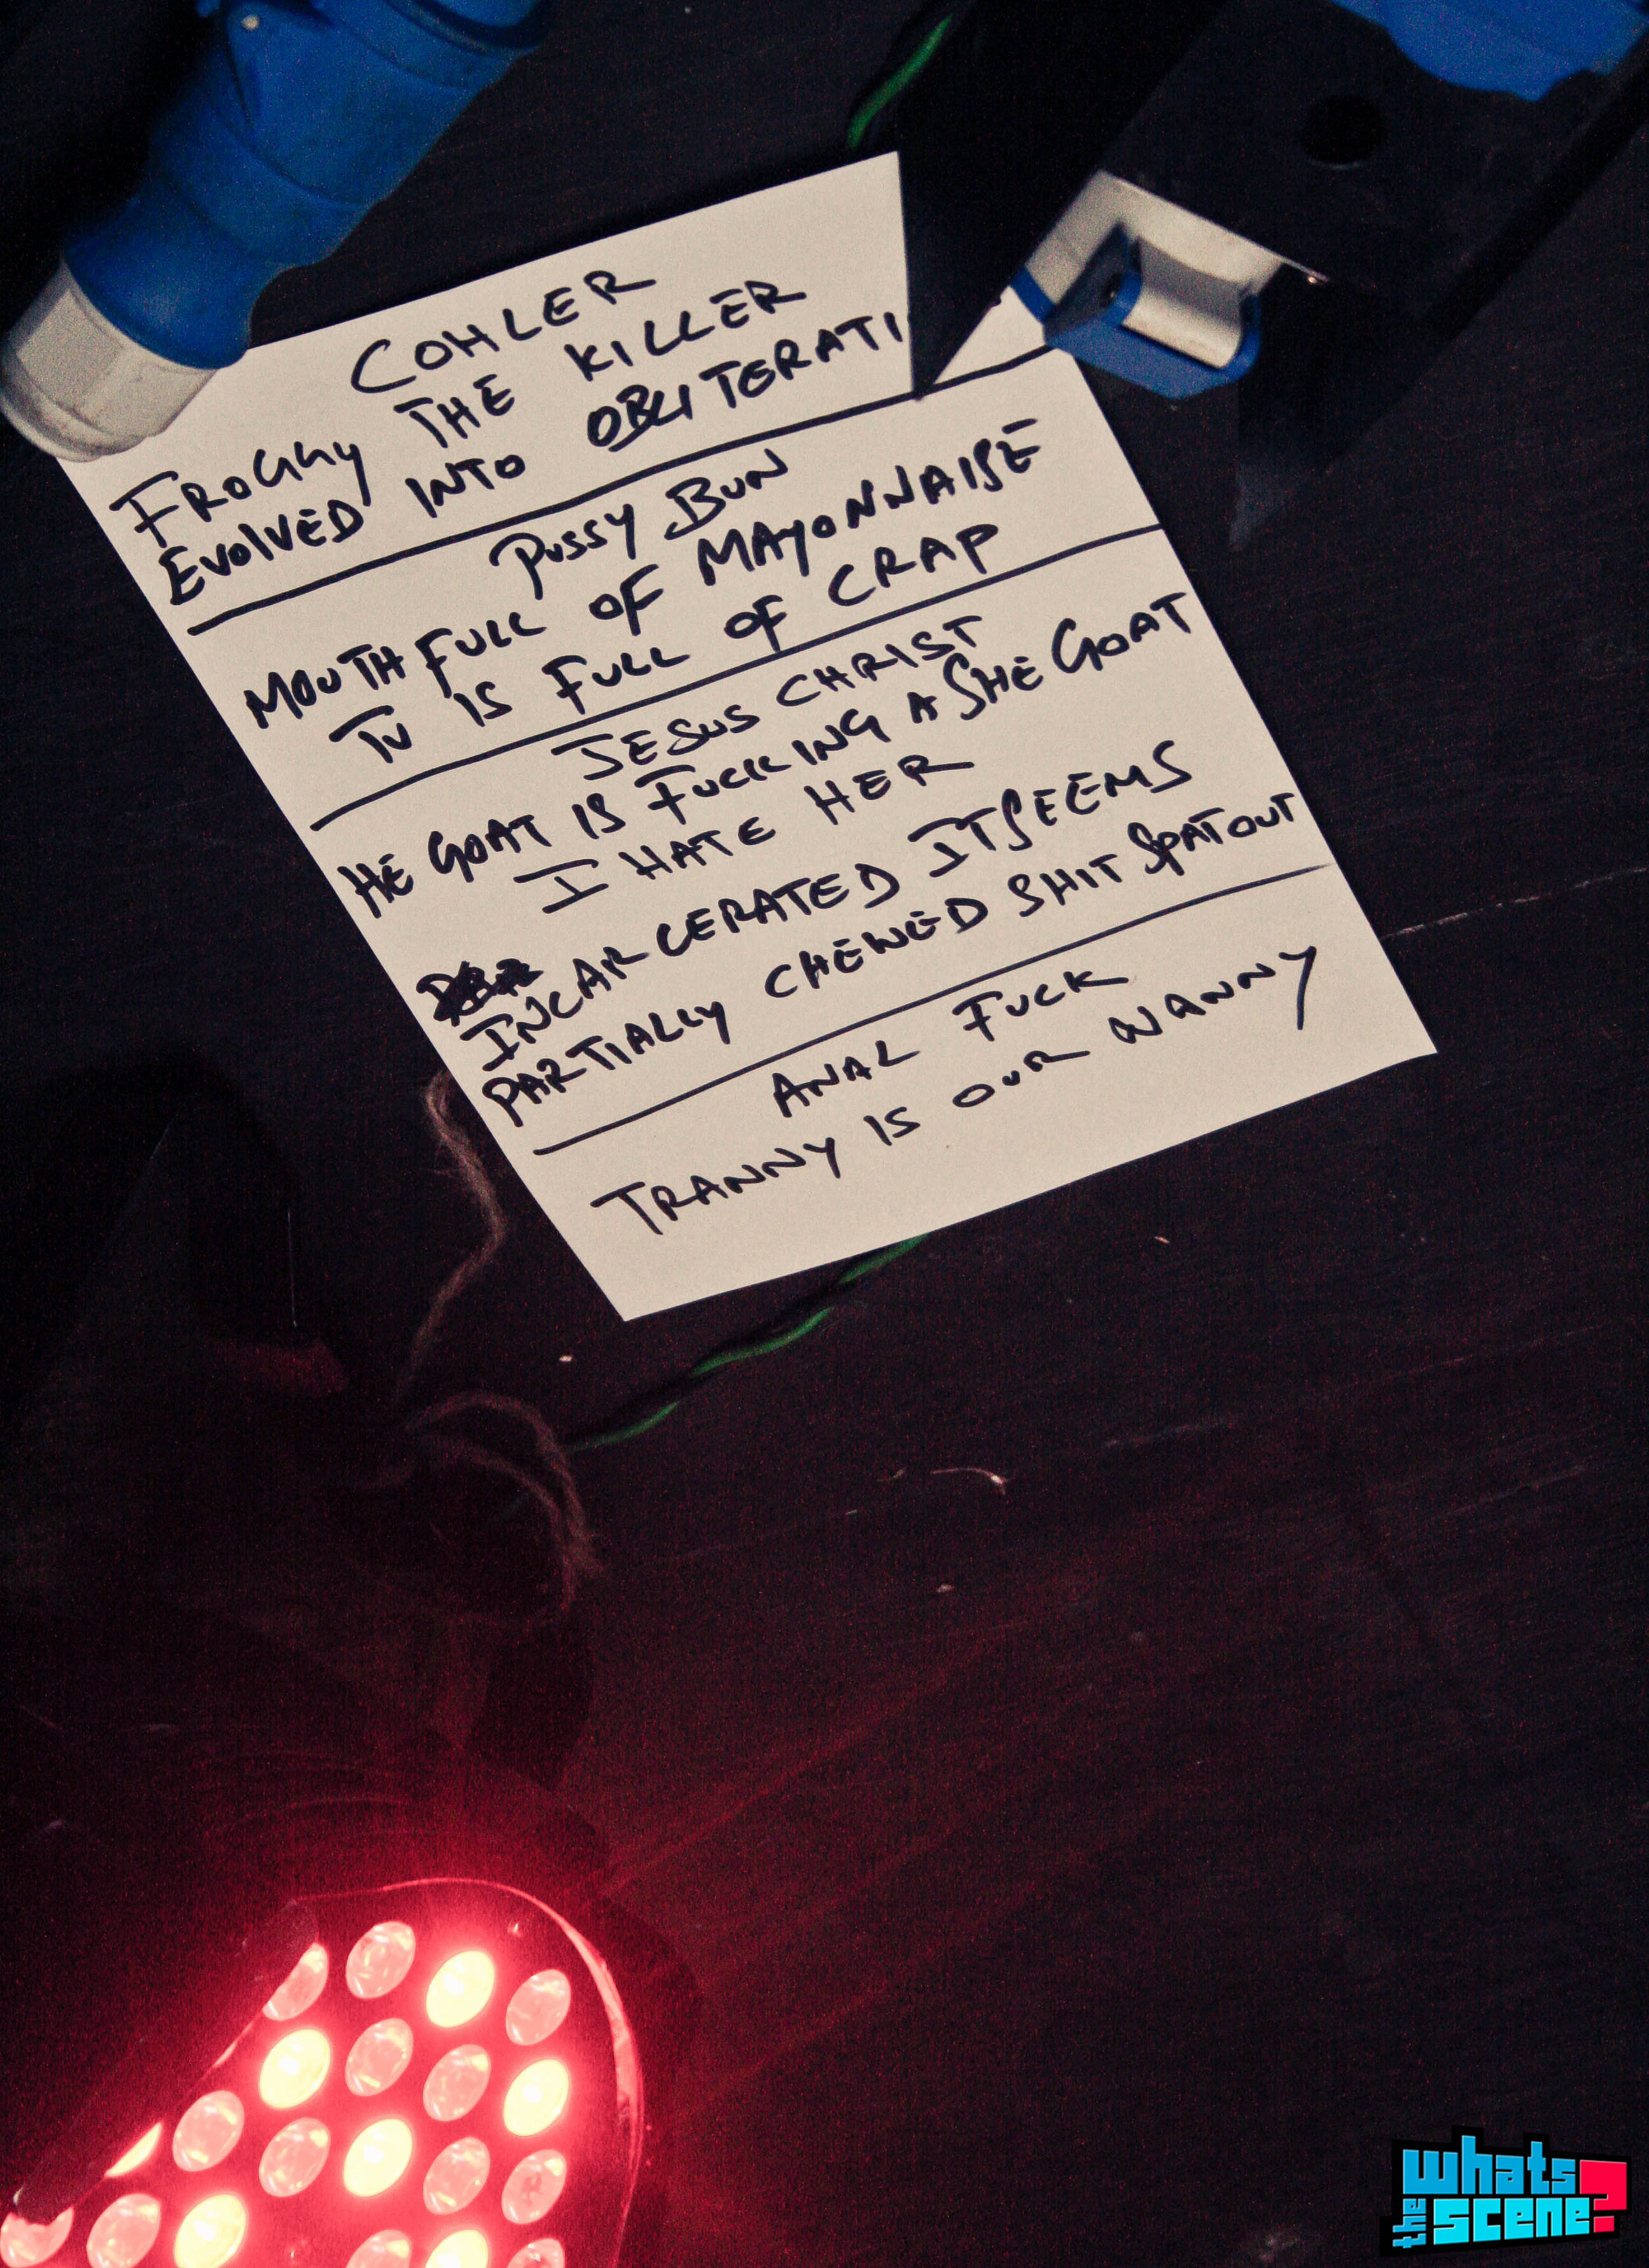 COHLER
FROGGY THE KILLER
EVOLVED INTO OBLITERATI
PUSSY BUN
MOUTH FULL OF MAYONNAISE
TV IS FULL OF CRAP
JESUS CHRIST
HE GOAT IS FUCKING A SHE GOAT
I HATE HER
INCARCERATED ITSEEMS
PARTIALLY CHEWED SHIT SPATOUT
ANAL FUCK
TRANNY IS OUR NANNY
whats
the scene?